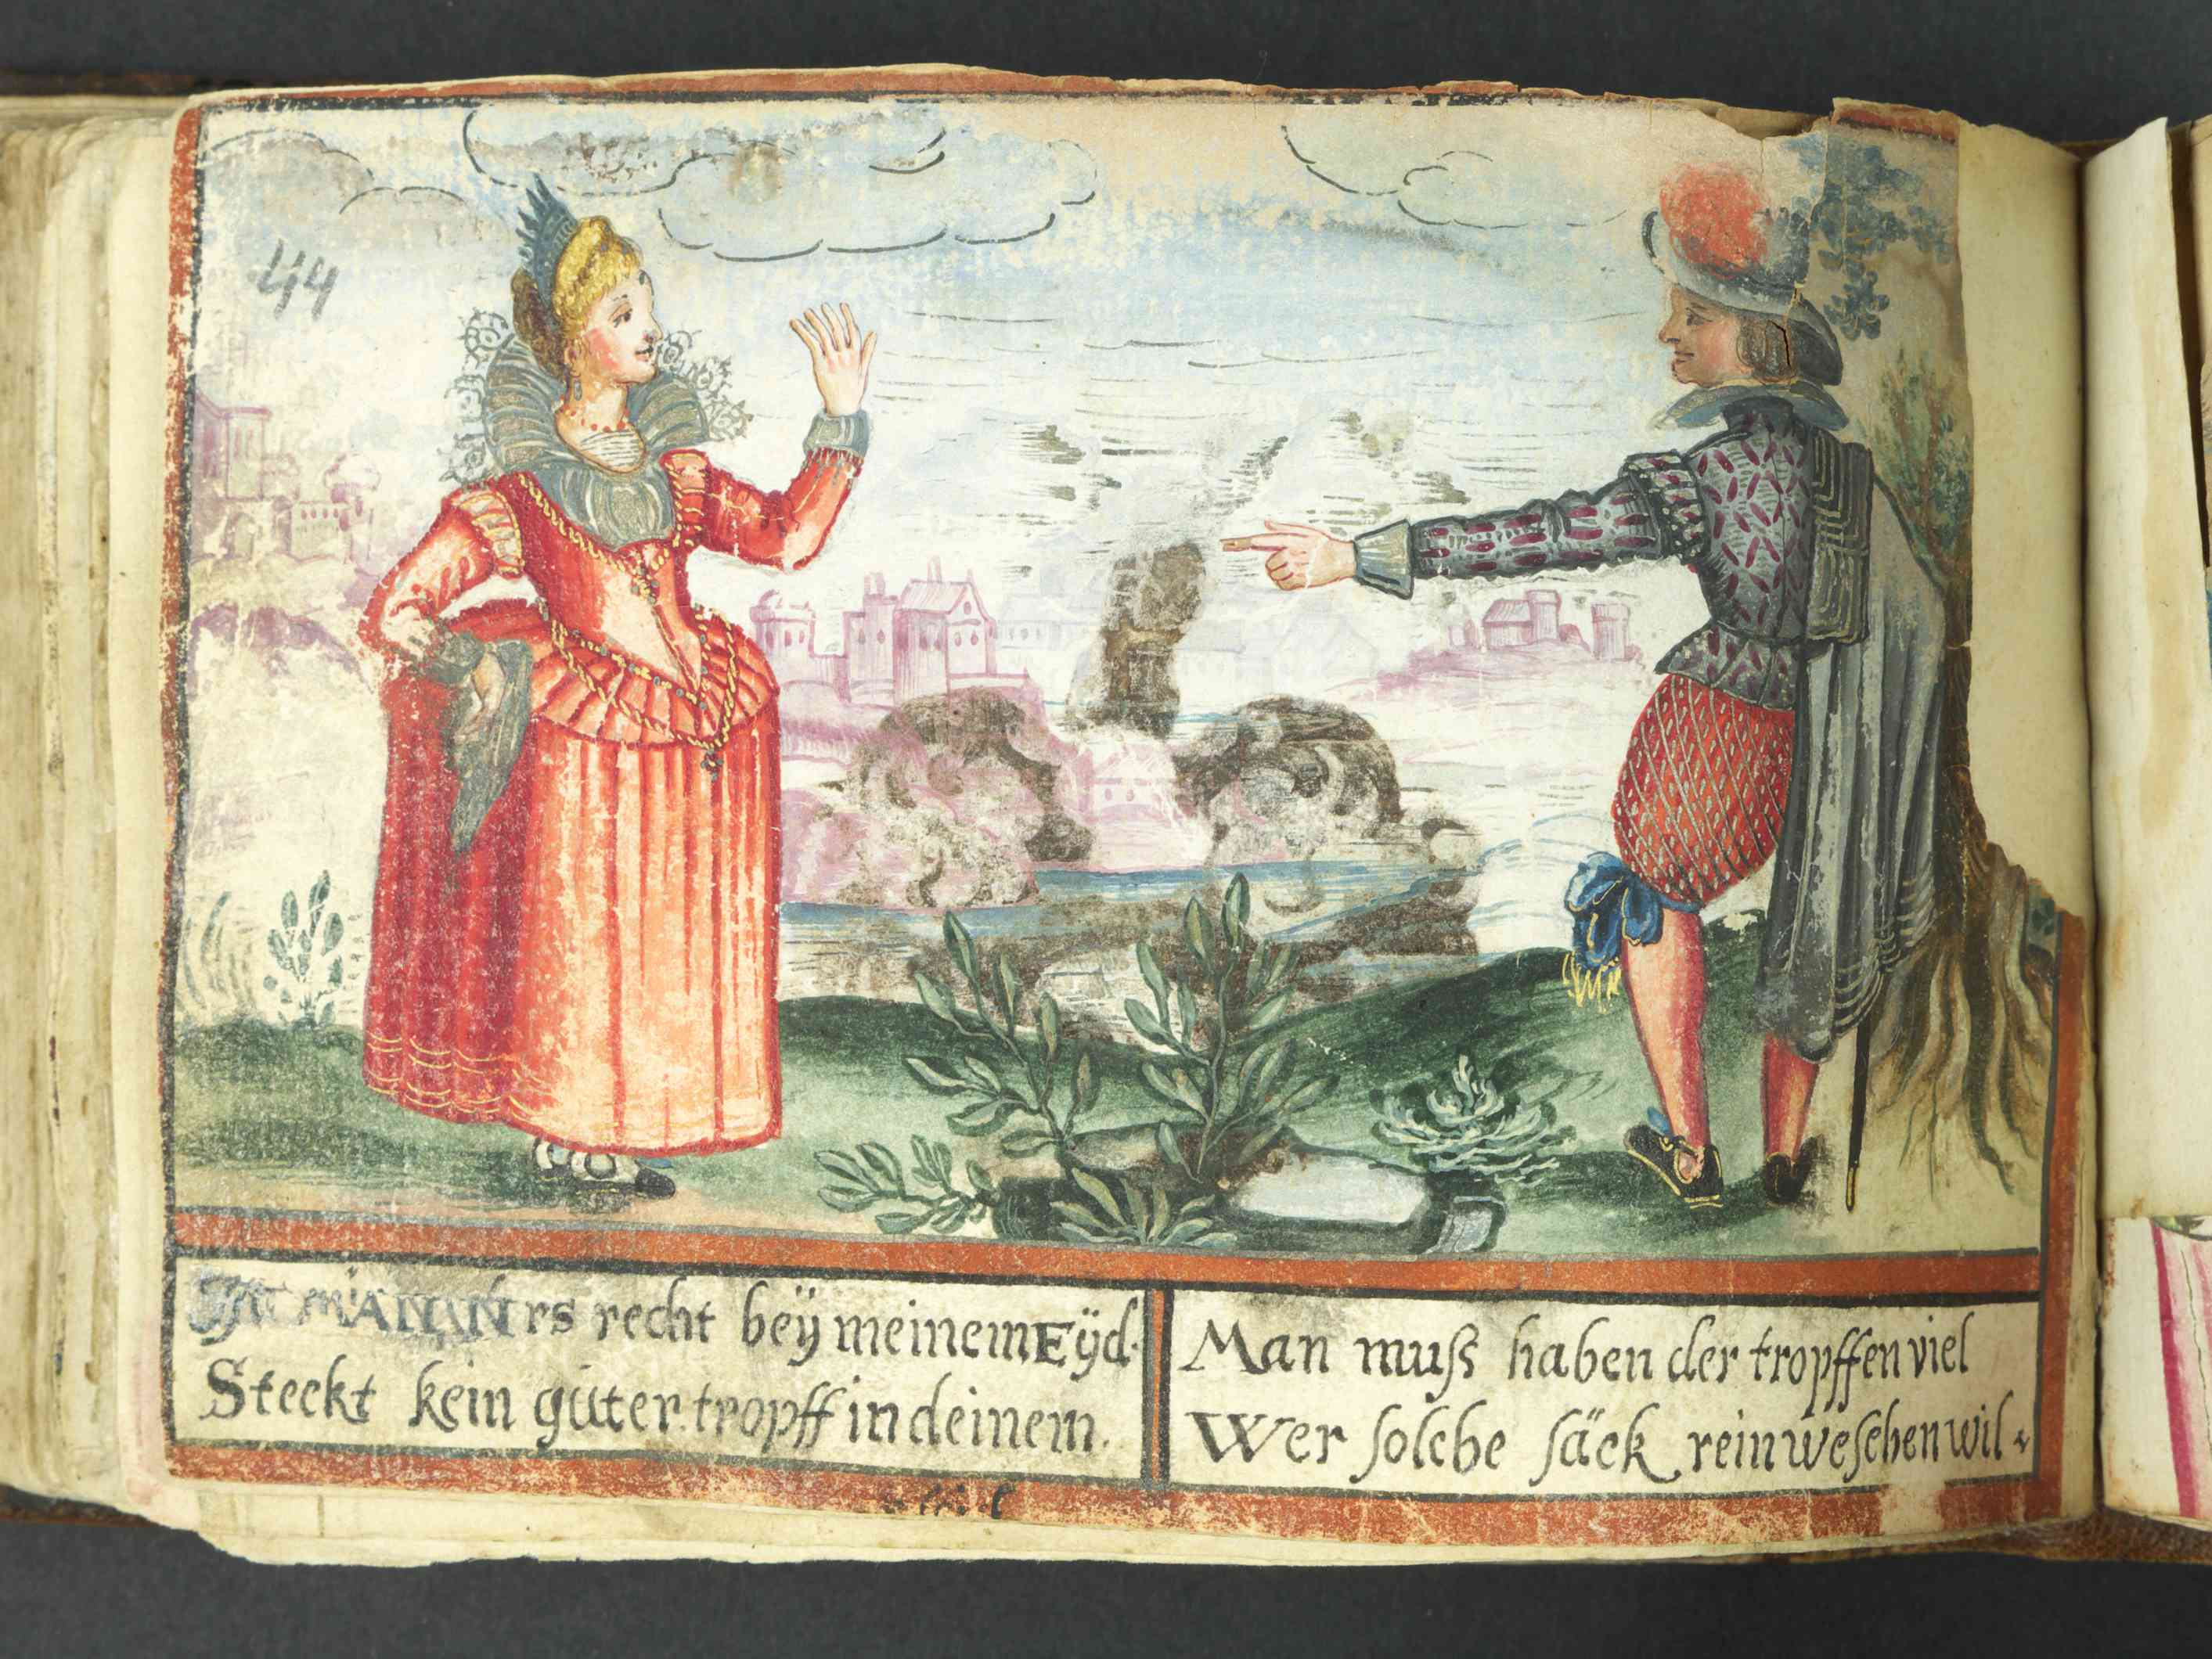 44
rs recht beÿ meinem Eÿd.
Steckt kein guter tropff in deinem.
Man muſs haben der tropffen viel
Wer ſolche ſäck rein weſchen wil